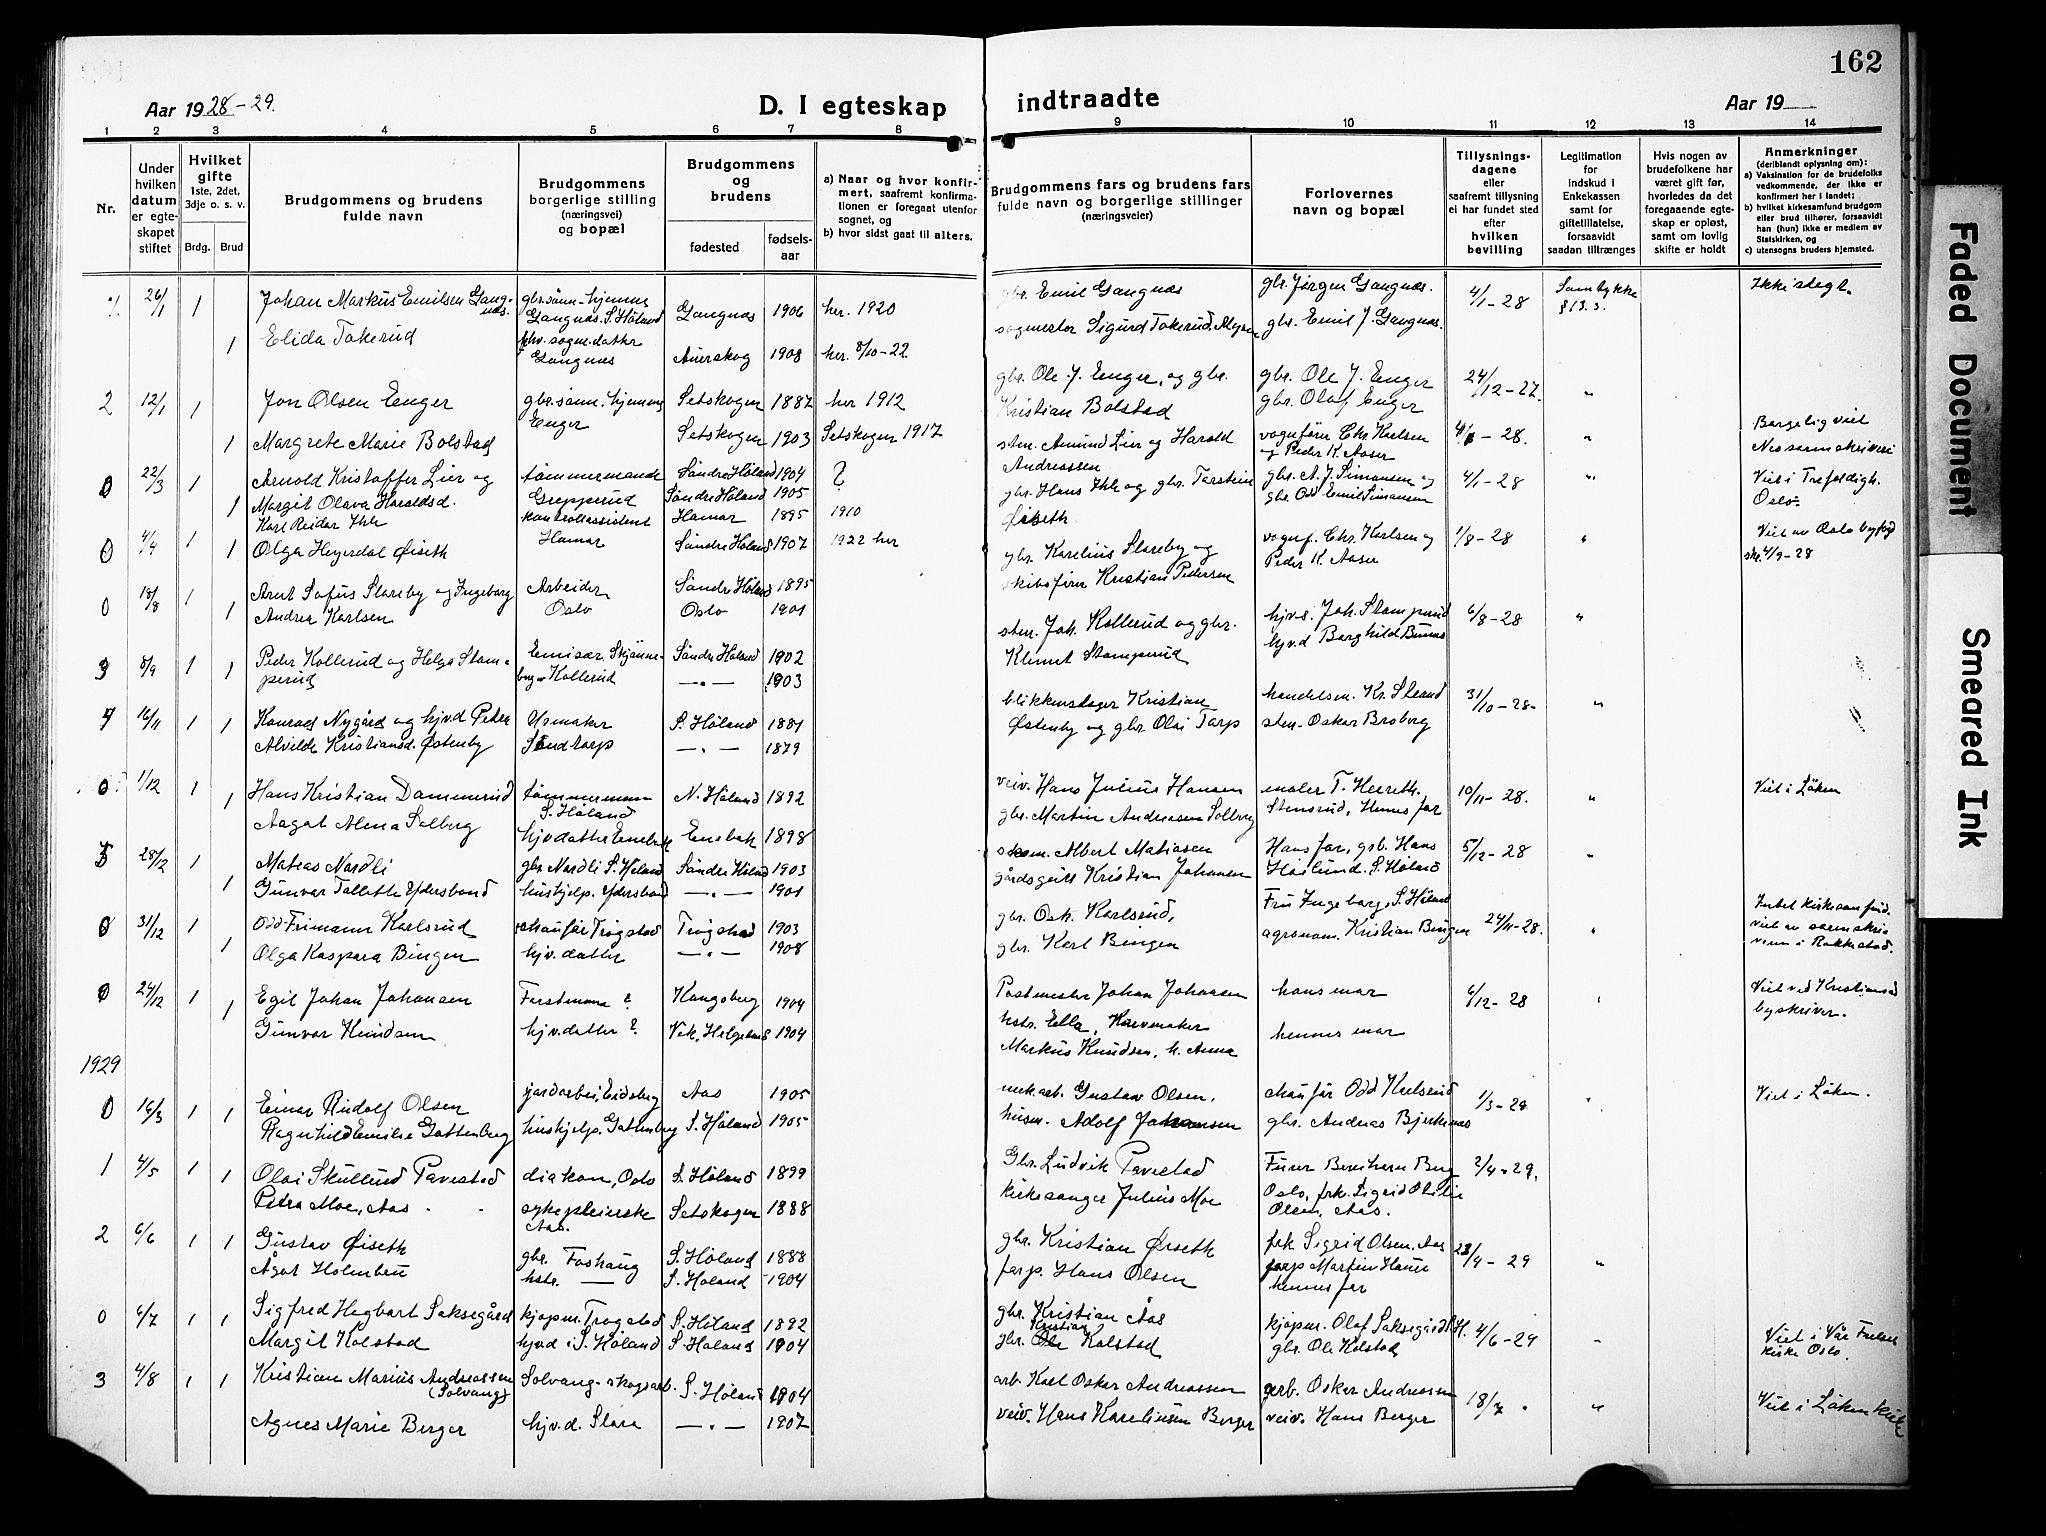 162
Aar 1928-29.
D. I egteskap indtraadte
Aar 19
1 2 3 4 5 6 7 8 9 10 11 12 13 14
Nr.
Under hvilken datum er egteskapet stiftet
Hvilket gifte
1ste, 2det, 3dje o. s. v.
Brdg. Brud
Brudgommens og brudens fulde navn
Brudgommens borgerlige stilling (næringsvei) og bopæl
Brudgommens og brudens
fødested
fødsels-aar
a) Naar og hvor konfirmert, saafremt konfirmationen er foregaat utenfor sognet, og
b) hvor sidst gaat til alters.
Brudgommens fars og brudens fars fulde navn og borgerlige stillinger (næringsveier)
Forlovernes navn og bopæl
Tillysningsdagene eller saafremt tillysning ei har fundet sted efter hvilken bevilling
Legitimation for indskud i Enkekassen samt for giftetillatelse, forsaavidt saadan tiltrænges
Hvis nogen av brudefolkene har været gift før, hvorledes da det foregaaende egteskap er opløst, samt om lovlig skifte er holdt
Anmerkninger
(deriblandt oplysning om):
a) Vaksination for de brudefolks vedkommende, der ikke er konfirmert her i landet;
b) hvilket kirkesamfund brudgom eller brud tilhører, forsaavidt han (hun) ikke er medlem av Statskirken, og
c) utensogns bruders hjemsted.
26/1 1 Johan Markus Emilsen Gangnæs. gbr.sønn hjemme Gangnæs. S. Høland Gangnæs 1906 her. 1920 gbr. Emil Gangnæs gbr. Jørgen Gangnæs. 4/1-28 Samtykke § 13.3. Ikke slegt.
1 Elida Takerud Gangnæs Aurskog 1908 her. 8/10-22. sagmester Sigurd Takerud gbr. Emil J. Gangnæs.
2 12/1 1 Jon Olsen Enger gbr.sønn. hjemme Enger Setskogen 1887 her 1912 gbr. Ole J. Enger, og gbr. Kristian Bolstad gbr. Ole J. Enger gbr. Olaf Enger 24/12-27. "
1 Margrete Marie Bolstad Setskogen 1903 Setskogen 1917
0 22/3 1 Arnold Kristoffer Lier og tømmermand Grepperud Søndre Høland 1904 ? sten. Amund Lier og Harald Andreassen vognfører Chr. Karlsen og Peder K. Aaser -28. " Borgelig viet Nes sorenskriveri
1 Margit Olava Haraldsd. Søndre Høland 1905
0 4/4 1 Karl Reidar kontrollassistent Hamar Hamar 1895 1910 gbr. Hans og gbr. Torstein Øiseth gbr. A. J. Simensen og gbr. Odd Emil Simensen 4/1-28 " Viet i Trefoldigh. Oslo
1 Olga Heyerdal Øiseth Søndre Høland 1907 1922 her
0 18/8 1 Arnt Sofus Slareby og Ingeborg Arbeider Oslo Søndre Høland 1895 gbr. Karelius Slareby og skibsfører Kristian Pedersen vognf. Chr. Karlsen og Peder K. Aaser 1/8-28 " Viet av Oslo byfogd 4/9-28
1 Andrea Karlsen Oslo 1901
3 8/9 1 1 Peder Kollerud og Helga Stamperud Emisær. Kollerud Søndre Høland 1902 —"— 1903 sten. Joh. Kollerud og gbr. Klemet Stamperud hjv.s. Joh. Stamperud hjv.d Borghild 6/8-28 "
4 16/11 1 1 Konrad Nygård og hjv.d Petra Urmaker Sandtorp S. Høland 1881 blikkenslager Kristian Østenby og gbr Olai Torp handelsm. Kr. Strand sten. Oskar Broberg 31/10-28. "
Alvilde Kristiansd. Østenby —"— 1879
0 1/12 1 Hans Kristian Dammerud tømmermann S. Høland N. Høland 1892 veiv. Hans Julius Hansen maler T. 10/11-28. " Viet i Løken
1 Aagot Alma Solberg hjv datter Enebak Enebak 1898 gbr. Martin Andreasen Solberg Stensrud, Hennes far
5 28/12 1 Matias Nordli gbr Nordli S. Høland Søndre Høland 1903 Albert Matiasen Hans far, gb. Hans 5/12-28 "
1 Gunvor Tallette Ydersbond hushjelp. Ydersbond —"— 1901 gårdsgutt Kristian Johansen Haslund. S. Høland
0 31/12 1 Odd Frimann Karlsrud chaufør Trøgstad Trøgstad 1903 gbr. Osk. Karlsrud, Fru Ingeborg, S. Høland 24/11-28. " viet av sorenskriveren i Rakkestad.
1 Olga Kaspara Bingen hjv. datter —"— 1908 gbr. Karl Bingen agronom. Kristian Bingen
0 24/12 1 Egil Johan Johansen Forstmann ? Kongsberg 1904 Postmester Johan Johansen hstr. Ella, hans mor 6/12-28 " Viet ved Kristiansand byskriver.
1 Gunvor Knudsen hjv.datter ? Vik, Helgeland 1904 Markus Knudsen, h. Anna hennes mor
1929
0 16/3 1 1 Einar Rudolf Olsen jordarbei, Eidsberg Aas 1905 mek.arb. Gustav Olsen. chaufør Odd Karlsrud 1/3-29 " Viet i Løken.
Ragnhild Emilie Gottenborg hushjelp. Gottenborg S. Høland 1905 husm. Adolf Johansen gbr. Andreas Bjerkenæs
1 4/5 1 1 Olai Skullerud Pavestad diakon, Oslo S. Høland 1899 Gbr. Ludvik Pavestad Furer Berg Oslo, frk. Sigrid Otilie Olsen, Aas. 2/4-29.
Petra Moe, Aas sykepleierske Aas. Setskogen 1888 kirkesanger Julius Moe
2 6/6 1 1 Gustav Øiseth gbr. Foshaug S. Høland 1888 gbr. Kristian Øiseth frk Sigrid Olsen, Aas 23/4-29 "
Ågot Holmbru hstr. — S. Høland 1904 forp. Hans Olsen forp Martin hennes far
0 6/7 1 1 Sigfred Hagbart Saksegård kjøpm. Trøgstad S. Høland 1892 gbr. Kristian Aas kjøpm. Olaf Saksegård 4/6-29 " Viet i Vår Frelsers kirke Oslo.
Margit Kolstad hjv.d i S. Høland S. Høland 1904 gbr. Kristian Kolstad gbr. Ole Kolstad
3 4/8 1 1 Kristian Marius Andreassen (Solvang) Solvang - skogsarb. S. Høland 1904 arb. Karl Oskar Andreassen arb. Oskar Andreassen 18/7 " " Viet i Løken kirke
Agnes Marie Berger hjv.d. Slora —"— 1907 veiv. Hans Karelinsen Berger veiv. Hans Berger
Faded Document
Smeared Ink